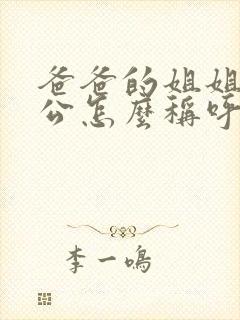 爸爸的姐姐
公怎麼稱呼
李一鳴